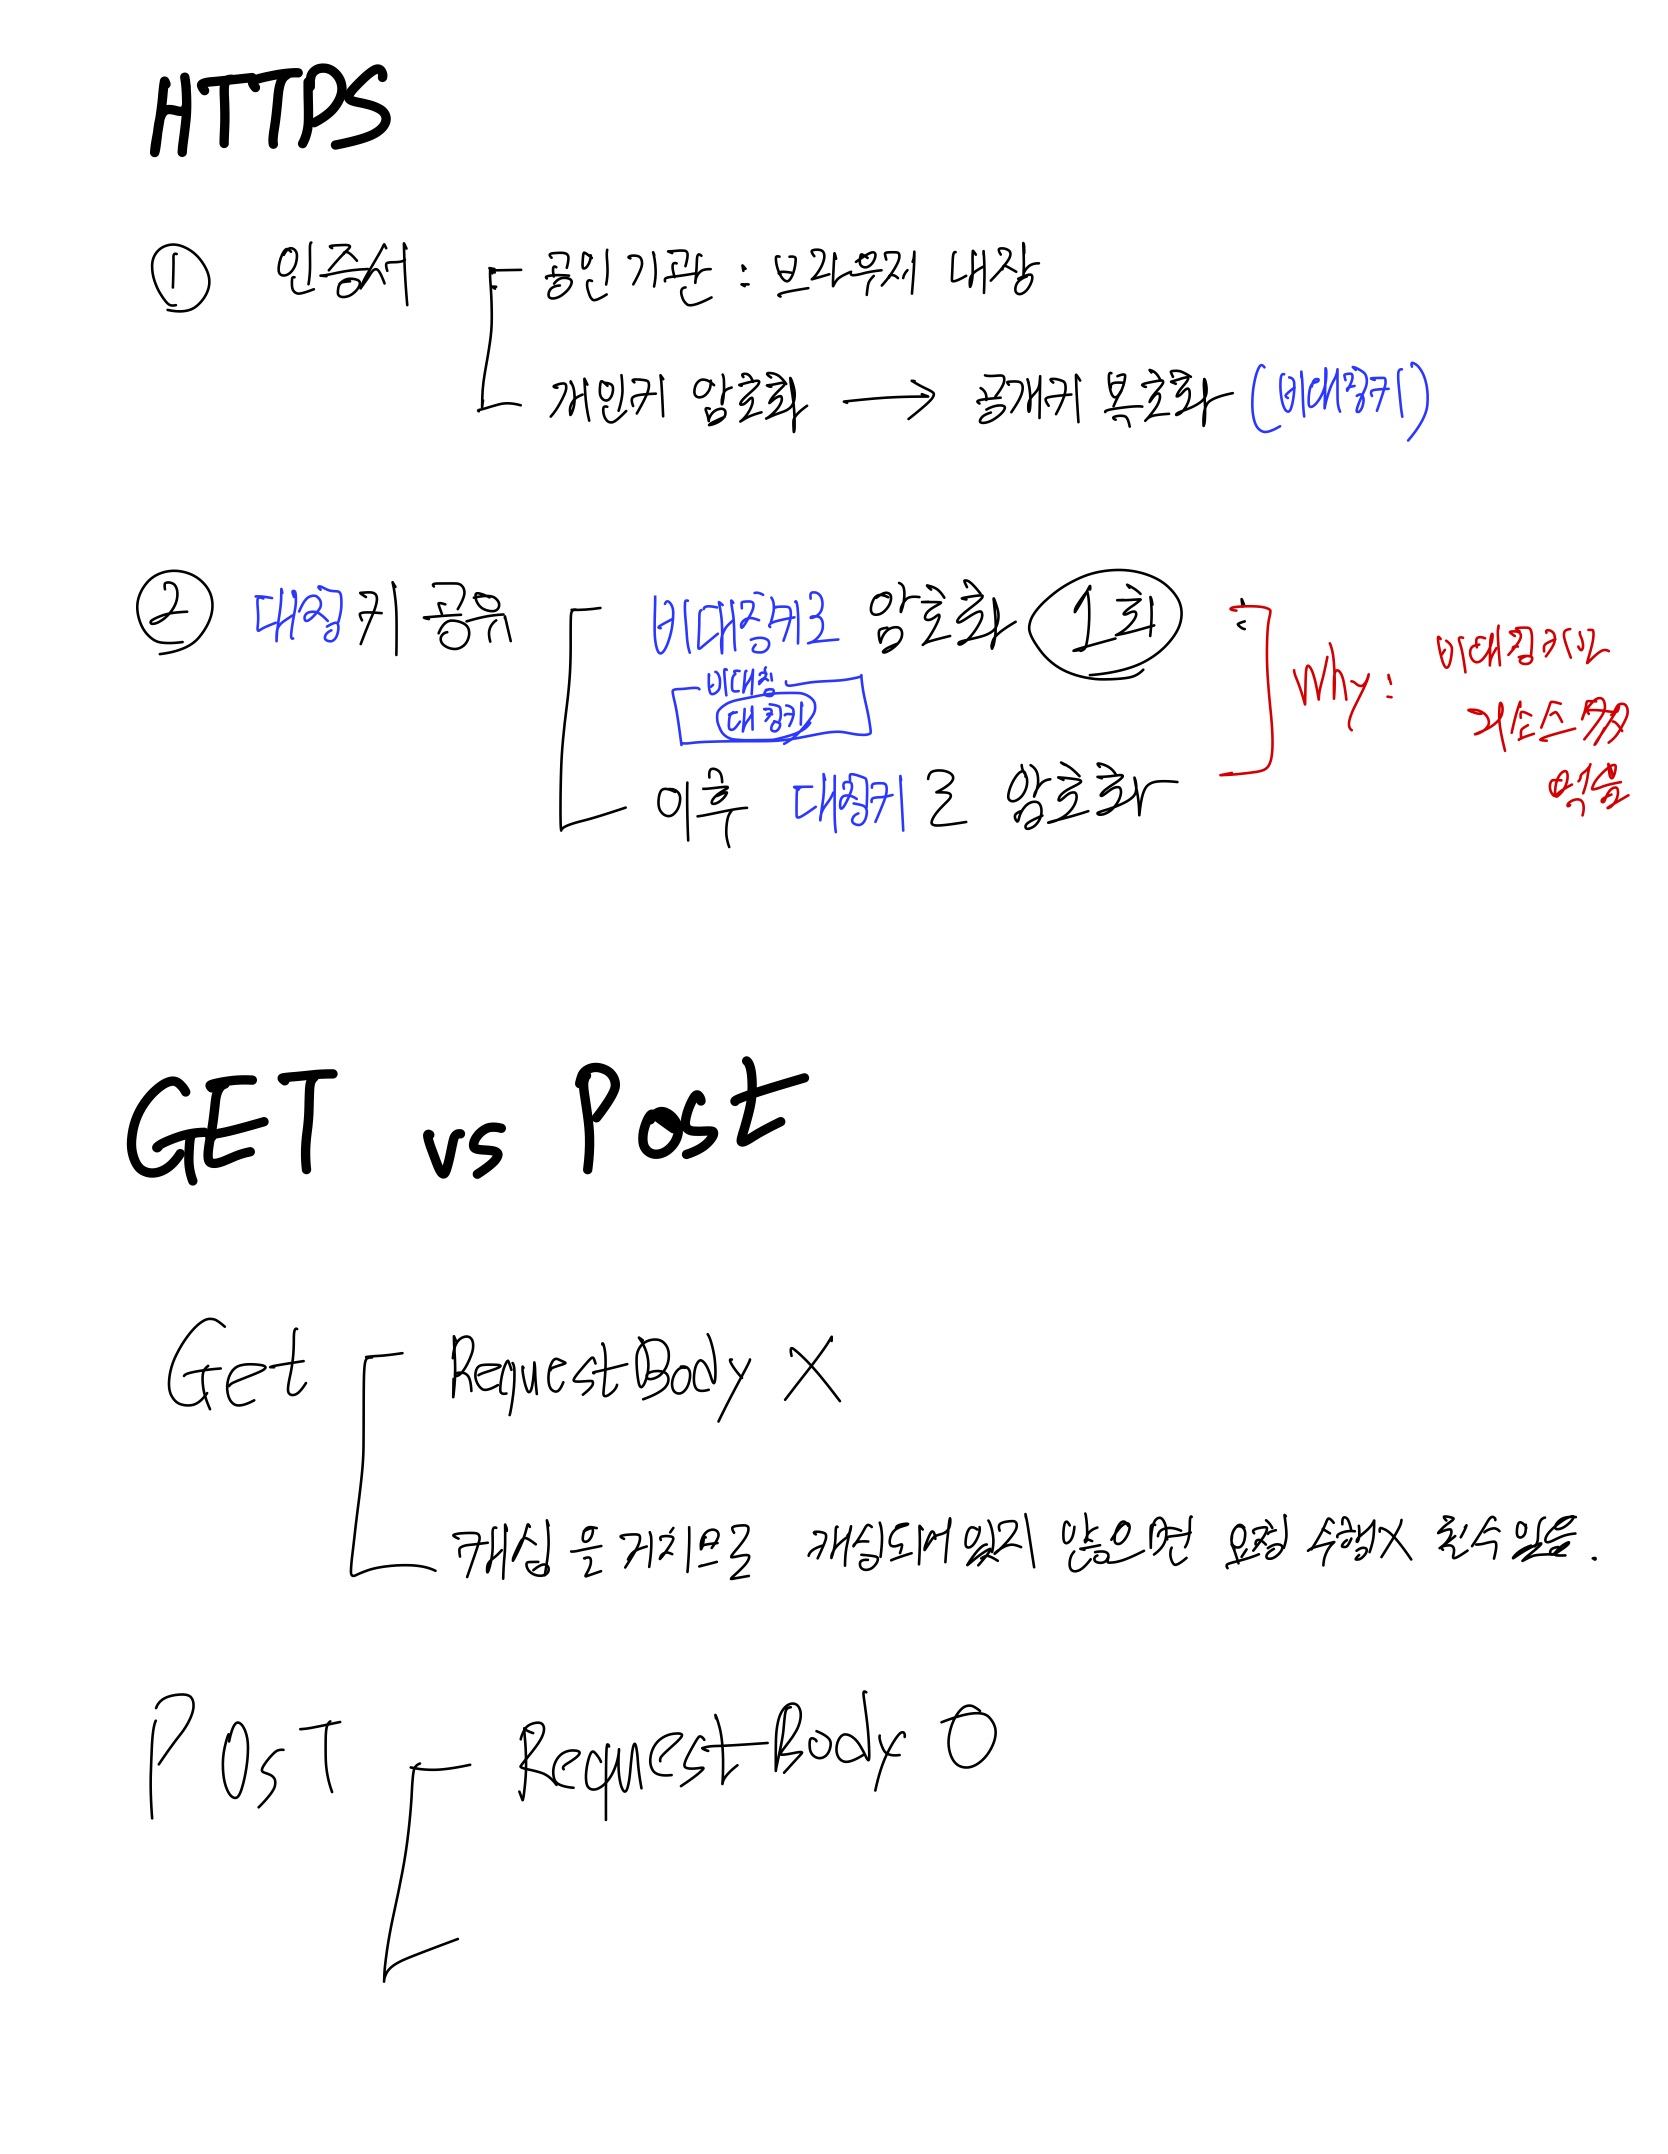 HTTPS
① 인증서
공인기관 : 브라우저 내장
개인키 암호화 → 공개키 복호화 (비대칭키)
② 대칭키 공유
비대칭키로 암호화 1회
비대칭
대칭키
이후 대칭키로 암호화
Why :
비대칭키는
리소스 많이
먹음
GET vs Post
Get
RequestBody X
캐싱을 거치므로 캐싱되어있지 않으면 요청 수행X 될수있음.
POST
RequestBody O